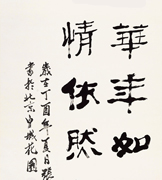 華年如
情依然
歲在丁酉年夏日張
書於北京
城花園